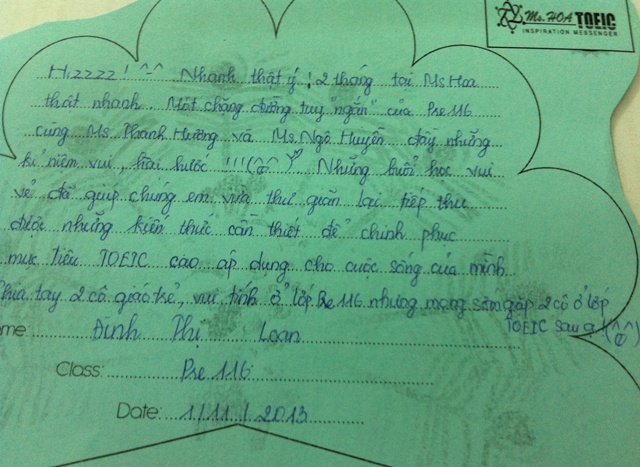 Ms. HOA TOEIC
INSPIRATION MESSENGER
Hizzzz! ^-^ Nhanh thật ý! 2 tháng tại Ms Hoa
thật nhanh. Một chặng đường tuy "ngắn" của Pre 116
cùng Ms. Thanh Hương và Ms. Ngô Huyền đầy những
kỉ niệm vui, hài hước !!! (^o^) Những buổi học vui
vẻ đã giúp chúng em vừa thư giãn lại tiếp thu
được những kiến thức cần thiết để chinh phục
mục tiêu TOEIC cao áp dụng cho cuộc sống của mình
Chia tay 2 cô giáo trẻ, vui tính ở lớp Pre 116 nhưng mong sớm gặp 2 cô ở lớp
TOEIC sau ạ (^o^)
ame: Đinh Thị Loan
Class: Pre 116
Date: 1/11/2013